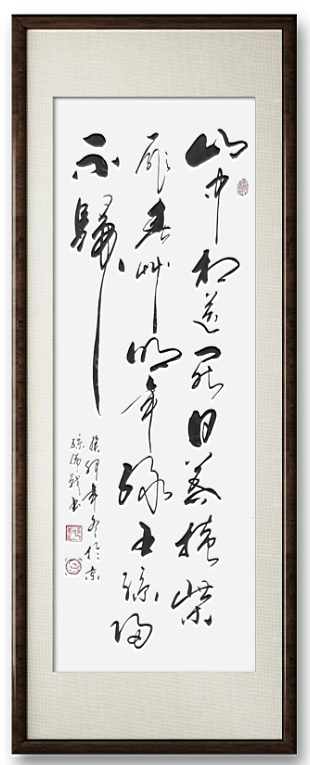 山中相送罷日暮掩柴
扉春草明年綠王孫歸
不歸
年冬於京
書